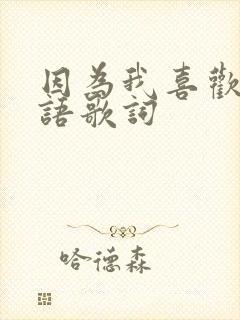 因為我喜歡
語歌詞
哈德森